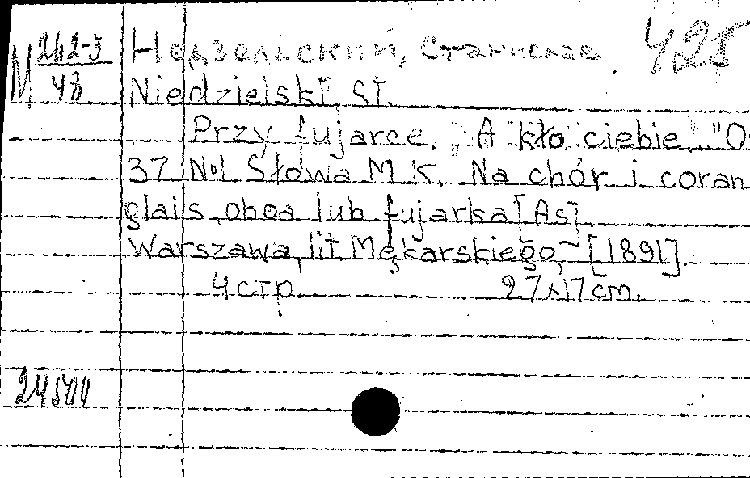 М 242-3/48
Недзельский, Станислав. 425
Niedzielski, St.
Przy fujarce. "A kto ciebie." O
37 N·1 Słowa M. K. Na chór i coran
glais, oboa lub fujarka [As].
Warszawa, lit. Mękarskiego, [1891].
4 стр. 27x17 cm.